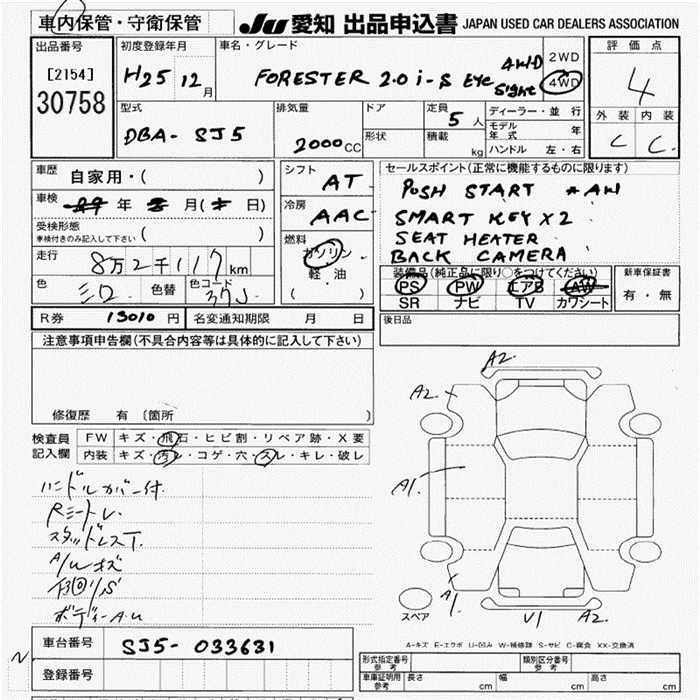 車内保管・守衛保管 JU 愛知 出品申込書 JAPAN USED CAR DEALERS ASSOCIATION
出品番号 初度登録年月 車名・グレード 評価点
[2154] H25 12月 FORESTER 2.0 i-S EYE Sight 4WD 2WD 4WD 4
30758
型式 排気量 ドア 定員 ディーラー・並行 外装 内装
DBA- SJ5 2000 CC 形状 5人 モデル年式 年 C C
積載 kg ハンドル 左・右
車歴 自家用・( ) シフト AT セールスポイント(正常に機能するものに限ります)
車検 年 月( 日) 冷房 AAC PUSH START AW
受検形態 ( ) SMART KEY X2
車検付きのみ記入して下さい 燃料 SEAT HEATER
走行 8万2千117km ガソリン BACK CAMERA
軽・油
( )
色 シロ 色替 色コード 37J 装備品(純正品に限り○をつけてください) 新車保証書
PS PW エアB AW 有・無
SR ナビ TV カワシート
R券 13010円 名変通知期限 月 日 後日品
注意事項申告欄(不具合内容等は具体的に記入して下さい)
修復歴 有 〔箇所 〕
検査員 FW キズ・飛石・ヒビ割・リペア跡・X要
記入欄 内装 キズ・汚レ・コゲ・穴・スレ・キレ・破レ
ハンドルカバー付
Rシートレ.
スタッドレスT.
A/Wキズ
下回リS
ボディーA.U
A2
A2
A1
A1
V1 A2
スペア
A-キズ E-エクボ U-凹み W-補修跡 S-サビ C-腐食 XX-交換済
車台番号 SJ5-033631
登録番号
形式指定番号 参考 類別区分番号 参考
車庫証明用 参考 長さ cm 幅 cm 高さ cm